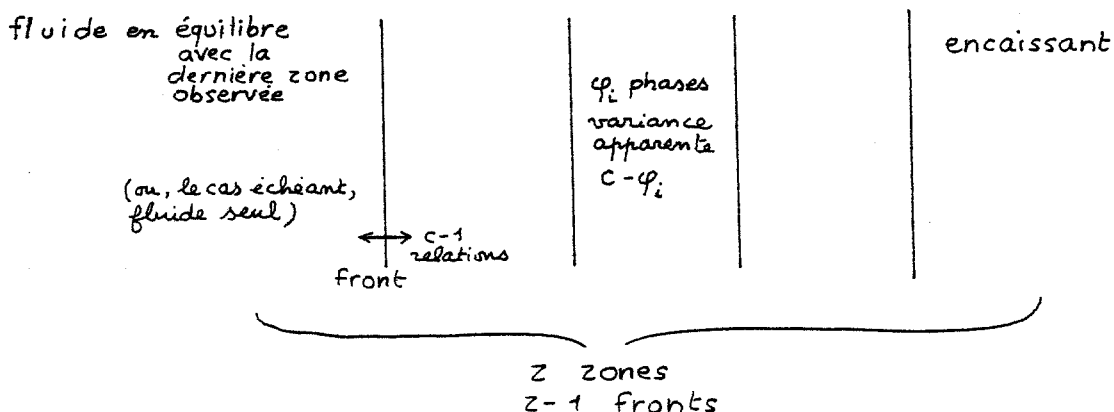 fluide en équilibre
avec la
dernière zone
observée
(ou, le cas échéant,
fluide seul)
c-1
relations
front
φi phases
variance
apparente
c-φi
encaissant
z zones
z-1 fronts